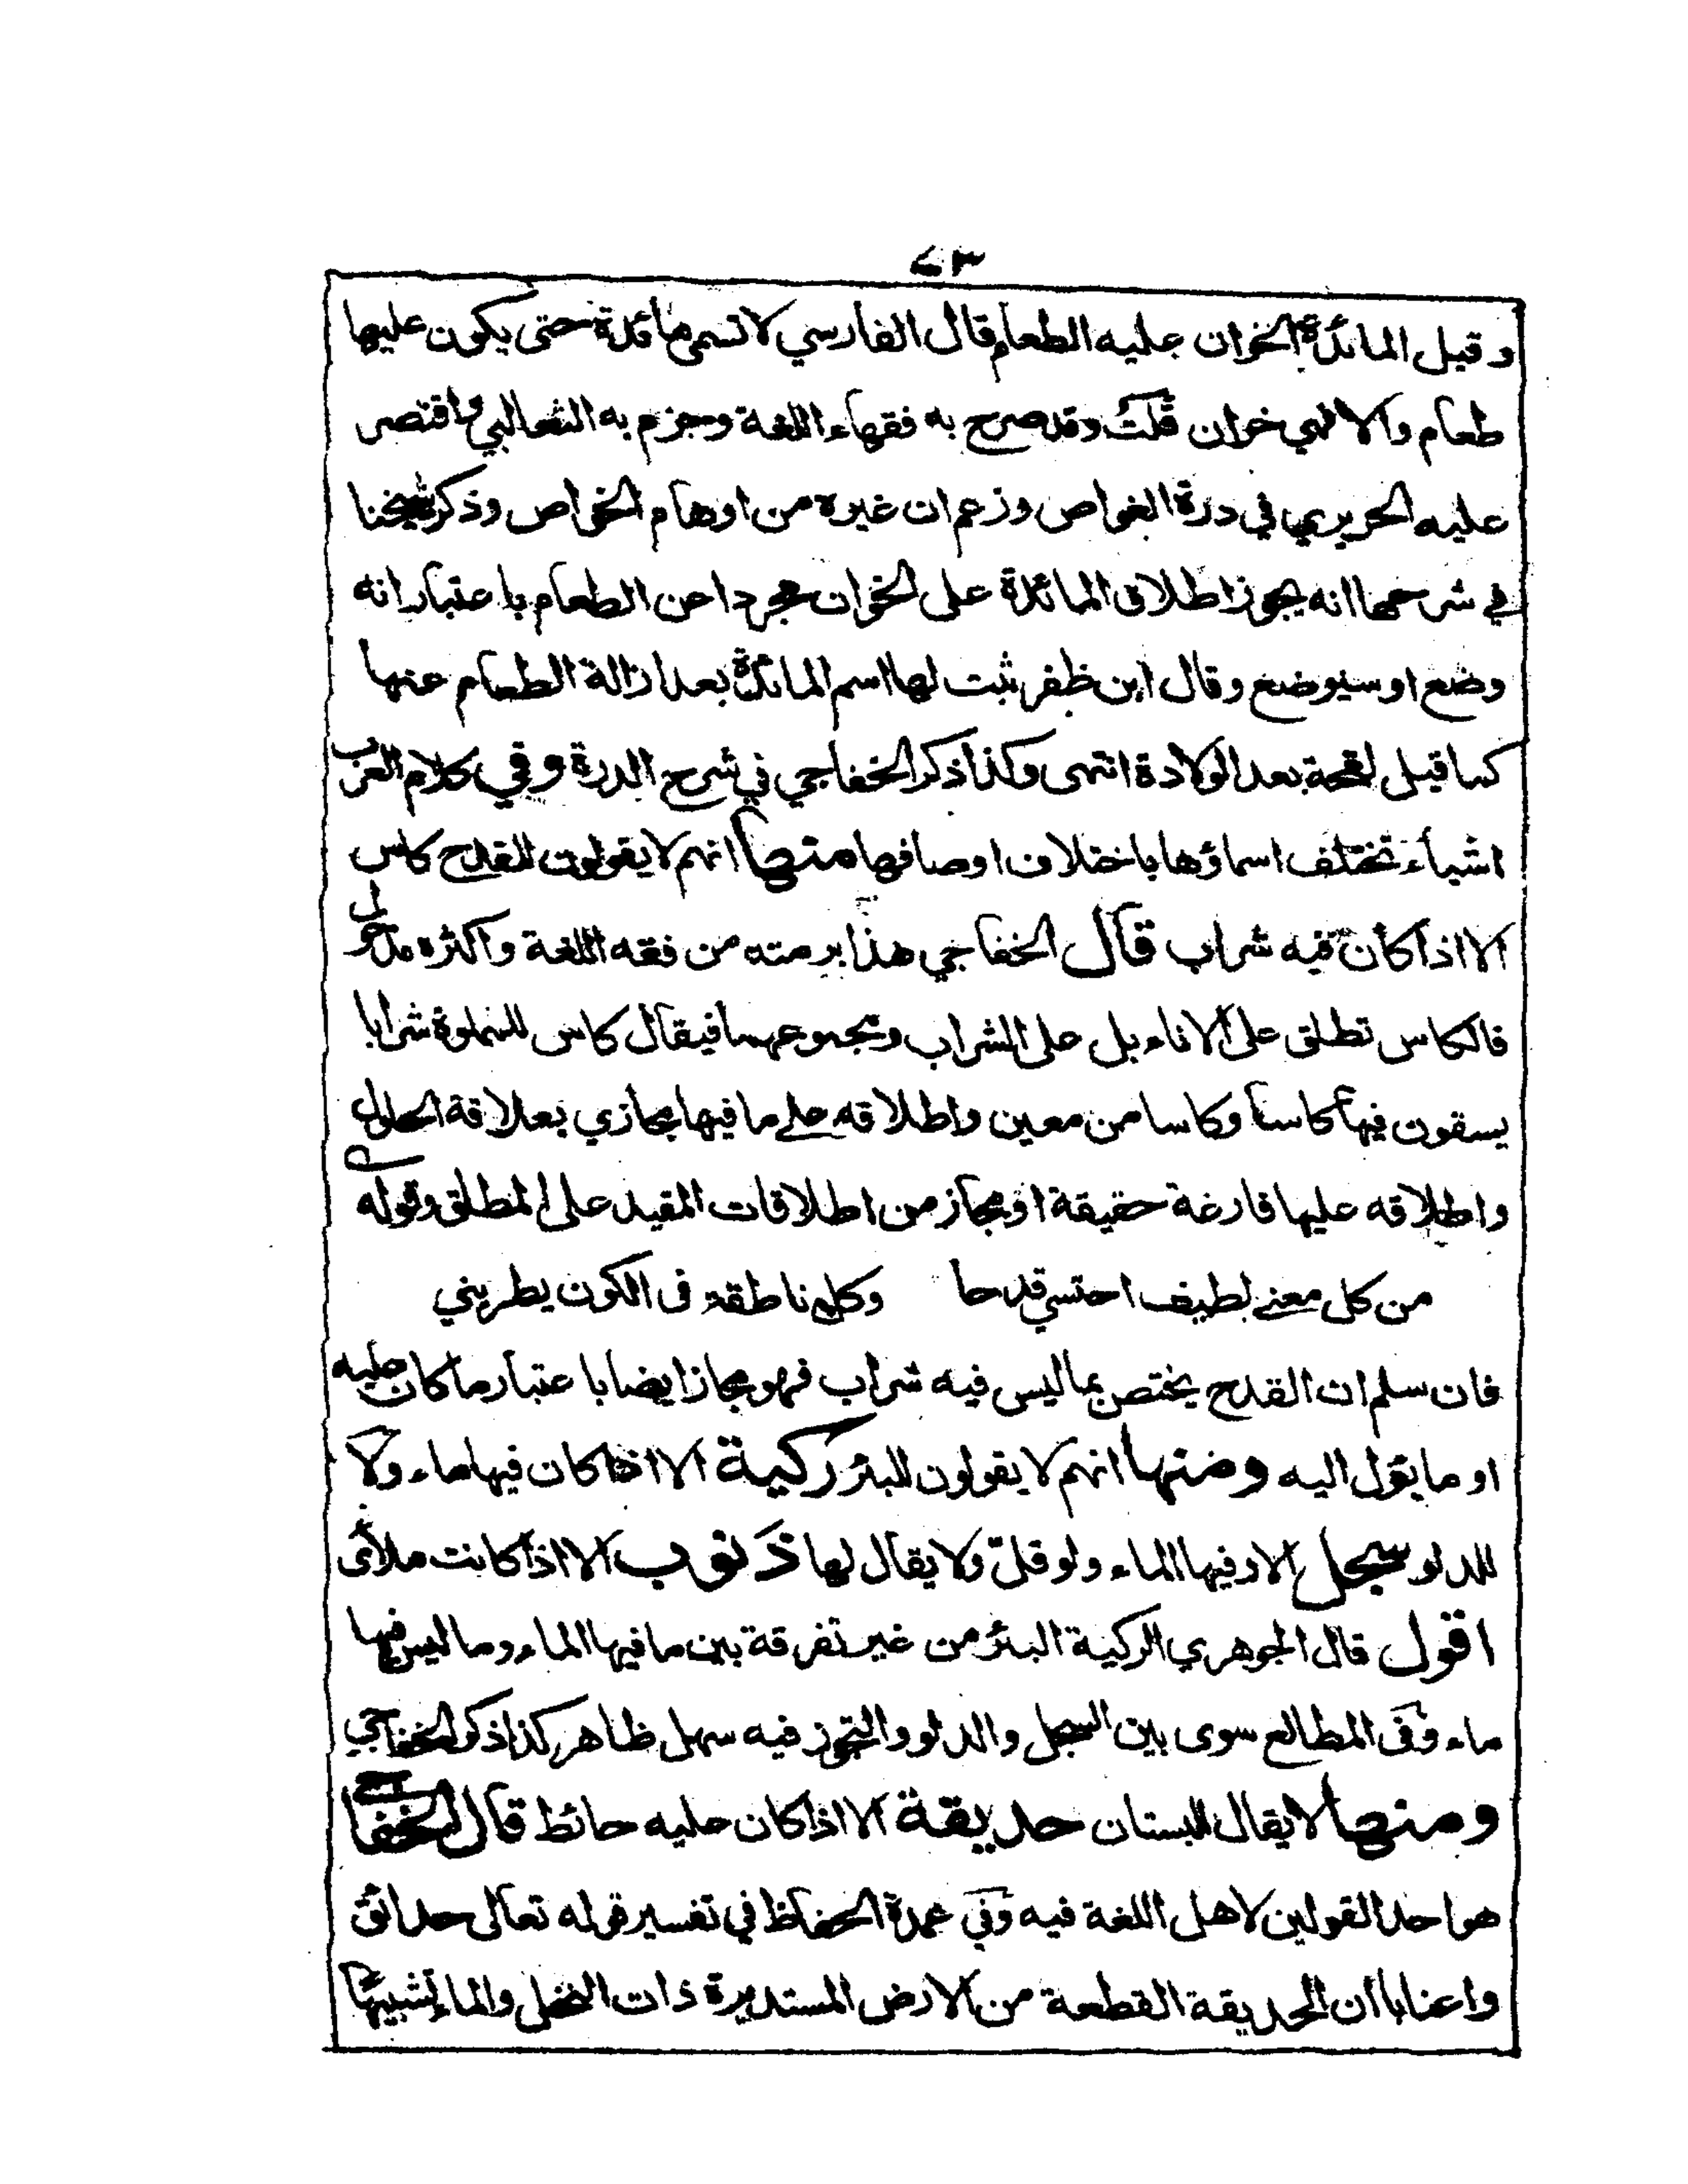 ٧٣
وقيل المائدة الخوان عليه الطعام قال الفارسي لا تسمى مائدة حتى يكون عليها
طعام والا فهي خوان قلت وقد صرح به فقهاء اللغة وجزم به الثعالبي واقتصر
عليه الحريري في درة الغواص وزعم ان غيره من اوهام الخواص وذكر شيخنا
في شرحها انه يجوز اطلاق المائدة على الخوان مجردا عن الطعام باعتبار انه
وضع او سيوضع وقال ابن ظفر ثبت لها اسم المائدة بعد ازالة الطعام عنها
كما قيل لقحة بعد الولادة انتهى وكذا ذكر الخفاجي في شرح الدرة وفي كلام العرب
اشياء تختلف اسماؤها باختلاف اوصافها منها انهم لا يقولون للقدح كاس
الا اذا كان فيه شراب قال الخفاجي هذا برمته من فقه اللغة واكثره مدخول
فالكاس تطلق على الاناء بل على الشراب ومجموعهما فيقال كاس للمملوة شرابا
يسقون فيها كاسا وكاسا من معين واطلاقه على ما فيها مجازي بعلاقة الحلول
واطلاقه عليها فارغة حقيقة او مجاز من اطلاقات المقيد على المطلق وقوله
من كل معنى لطيف احتسي قدحا وكل ناطقة في الكون يطربني
فان سلم ان القدح يختص بما ليس فيه شراب فهو مجاز ايضا باعتبار ما كان عليه
او ما يؤل اليه ومنها انهم لا يقولون للبئر ركية الا اذا كان فيها ماء ولا
للدلو سجل الا وفيها الماء ولو قل ولا يقال لها ذنوب الا اذا كانت ملأى
اقول قال الجوهري الركية البئر من غير تفرقة بين ما فيها الماء وما ليس فيها
ماء وفي المطالع سوى بين السجل والدلو والتجوز فيه سهل ظاهر كذا ذكر الخفاجي
ومنها لا يقال للبستان حديقة الا اذا كان عليه حائط قال الخفاجي
هو احد القولين لاهل اللغة فيه وفي عمدة الحفاظ في تفسير قوله تعالى حدائق
واعنابا ان الحديقة القطعة من الارض المستديرة ذات النخل والماء تشبيها